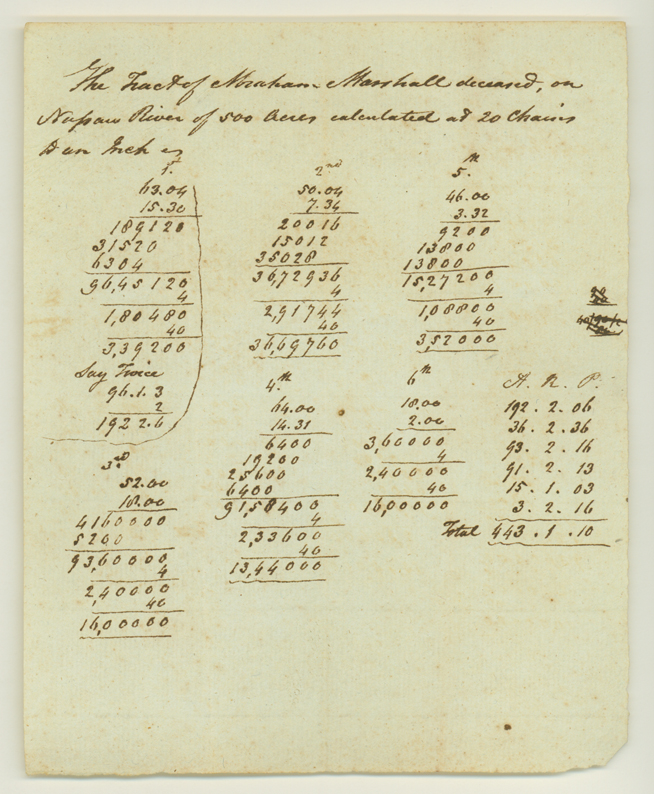 The Tract of Abraham Marshall deceased, on
River of 500 Acres calculated at 20 Chains
an Inch
1st
63.04
15.30
189120
31520
6304
96,45120
4
1,80480
40
3,39200
Say Twice
96.1.3
2
192 2.6
2nd
50.04
7.34
20016
15012
35028
36,72936
4
2,91744
40
36,69760
5th
46.00
3.32
9200
13800
13800
15,27200
4
1,08800
40
3,52000
3rd
52.00
18.00
4160000
5200
93,60000
4
2,40000
40
16,00000
4th
64.00
14.31
6400
19200
25600
6400
91,58400
4
2,33600
40
13,44000
6th
18.00
2.00
3,60000
4
2,40000
40
16,00000
A. R. P.
192 . 2 . 06
36 . 2 . 36
93 . 2 . 16
91 . 2 . 13
15 . 1 . 03
3 . 2 . 16
Total 443 . 1 . 10